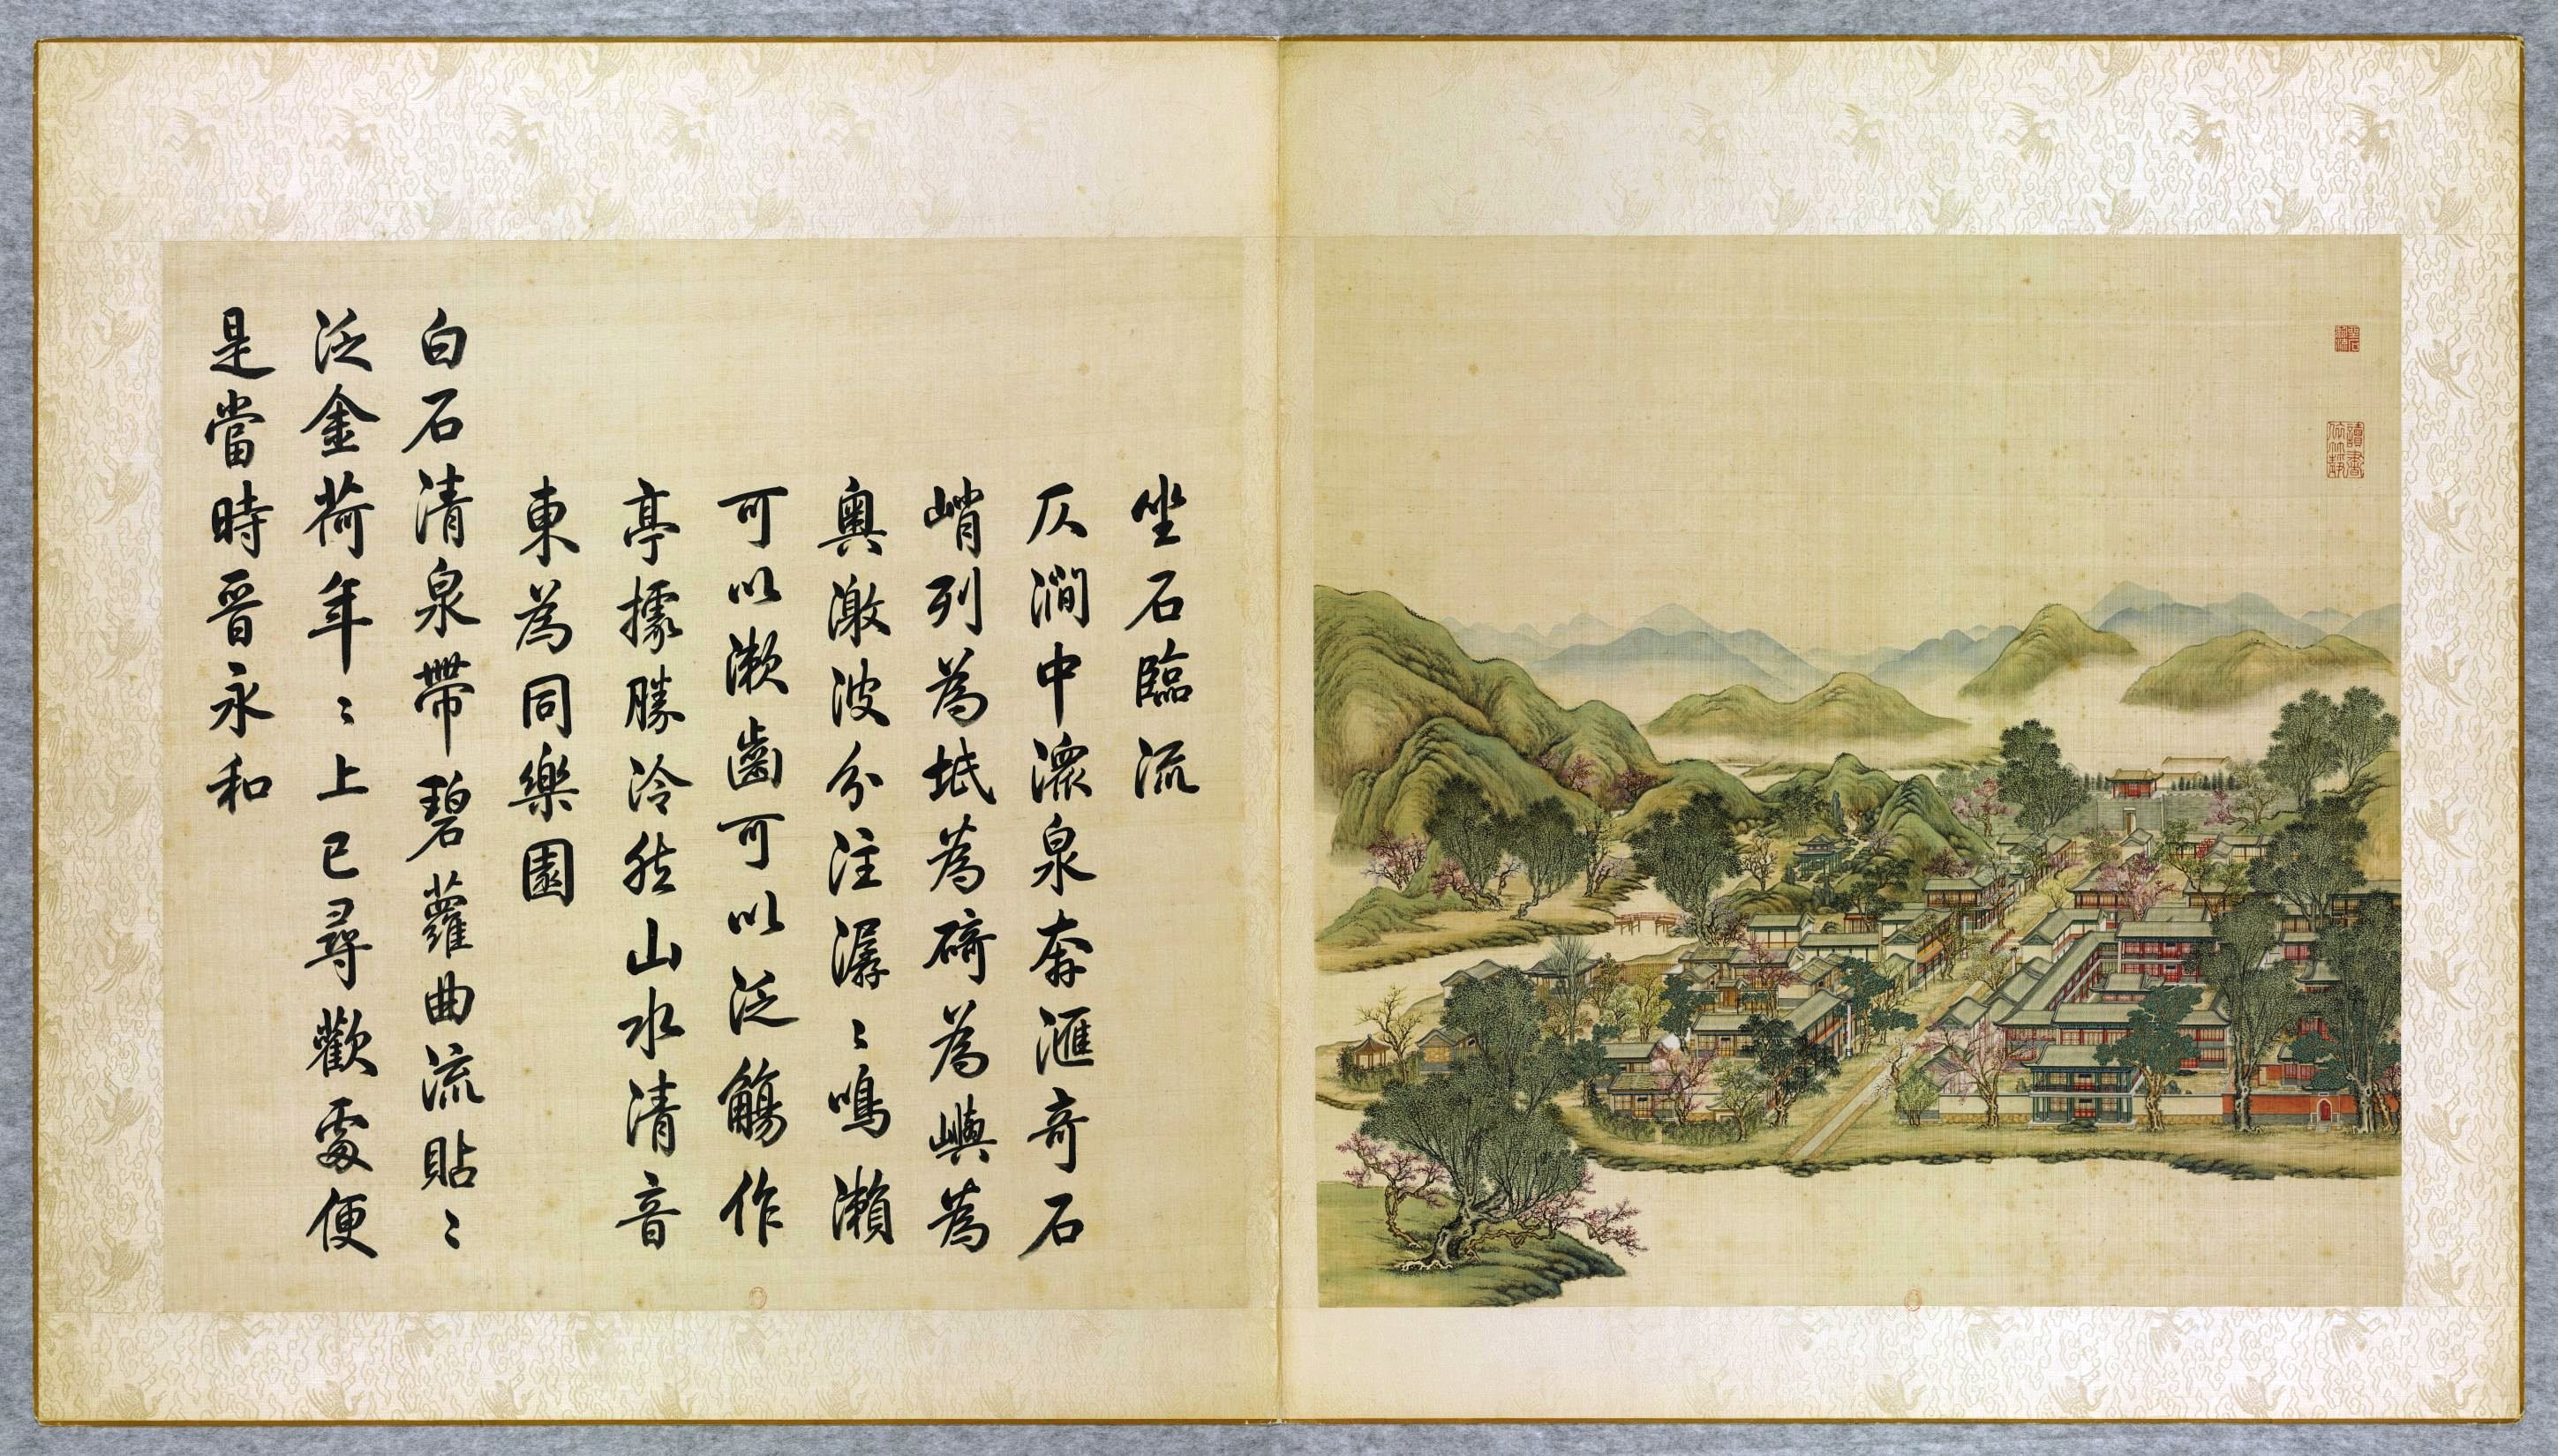 坐石臨流
仄澗中潀泉奔滙奇石
峭列為坻為碕為嶼為
奧激波分注潺〻鳴瀨
可以漱齒可以泛觴作
亭據勝泠然山水清音
東為同樂園
白石清泉帶碧蘿曲流貼〻
泛金荷年〻上巳尋歡處便
是當時晉永和